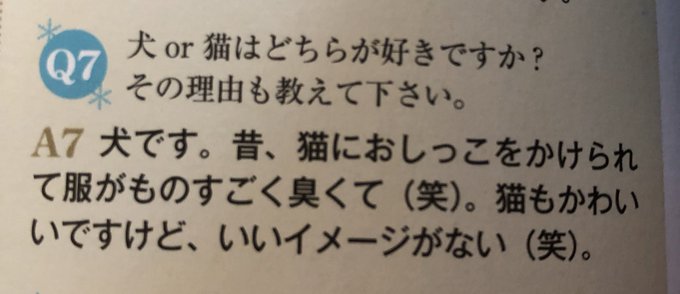 Q7
犬 or 猫はどちらが好きですか?
その理由も教えて下さい。
A7 犬です。昔、猫におしっこをかけられ
て服がものすごく臭くて(笑)。猫もかわい
いですけど、いいイメージがない(笑)。